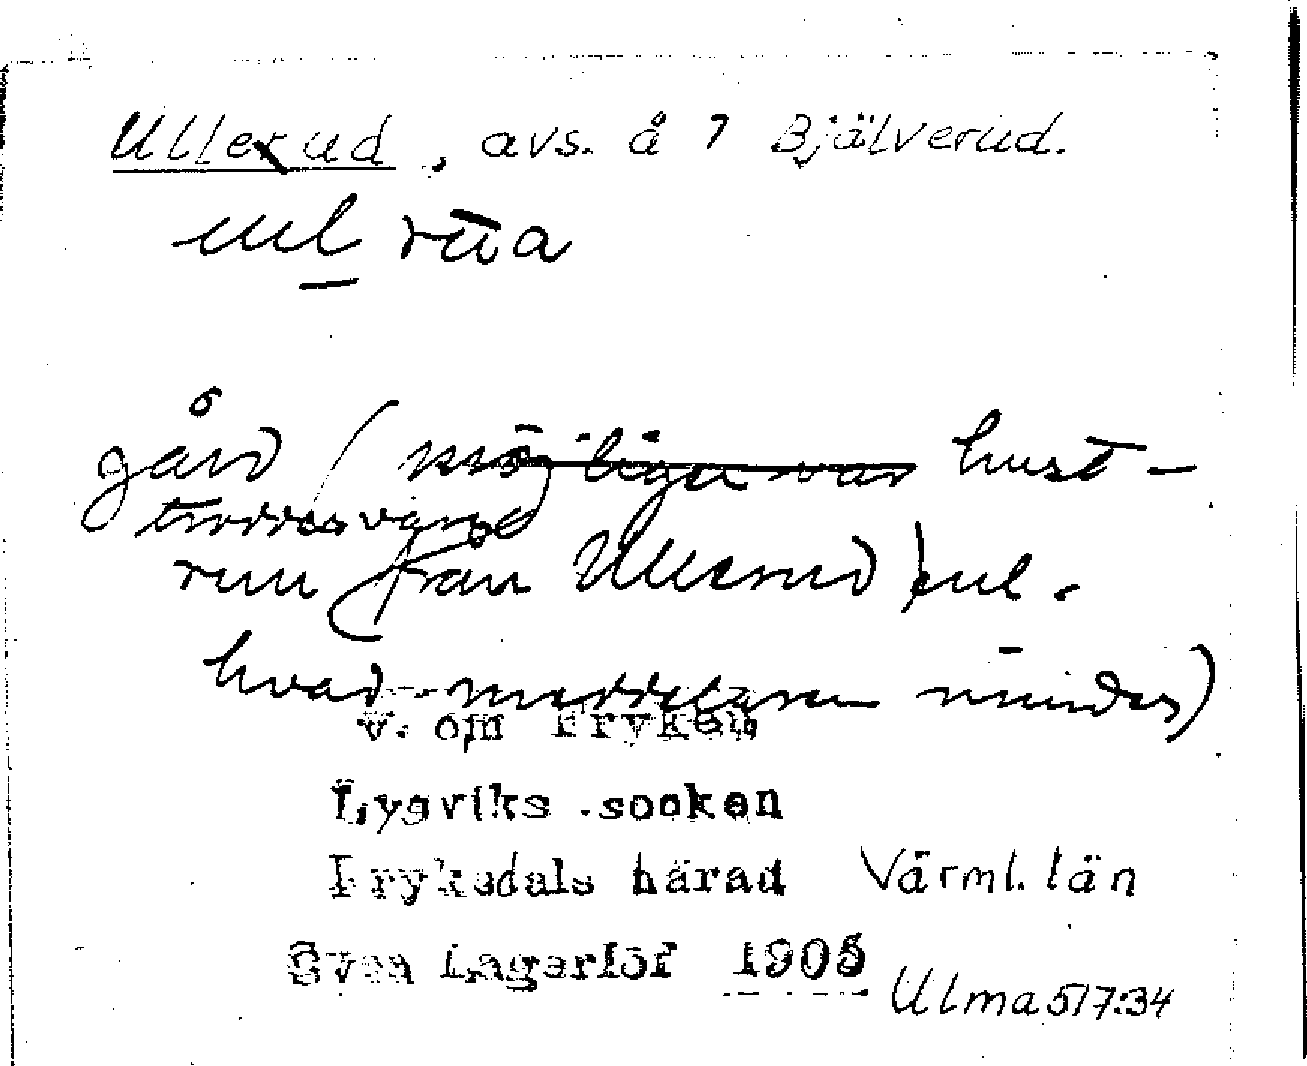 Ullerud, avs. å 7 Bjälverud.
ul rūa
gård (möjligen var hust-
trovis
run från Ullerud) enl.
hvad meddelaren mindes)
V. om Fryken
Lysviks socken
Fryksdals härad Värml. län
Svea Lagerlöf 1905
Ulma 517:34